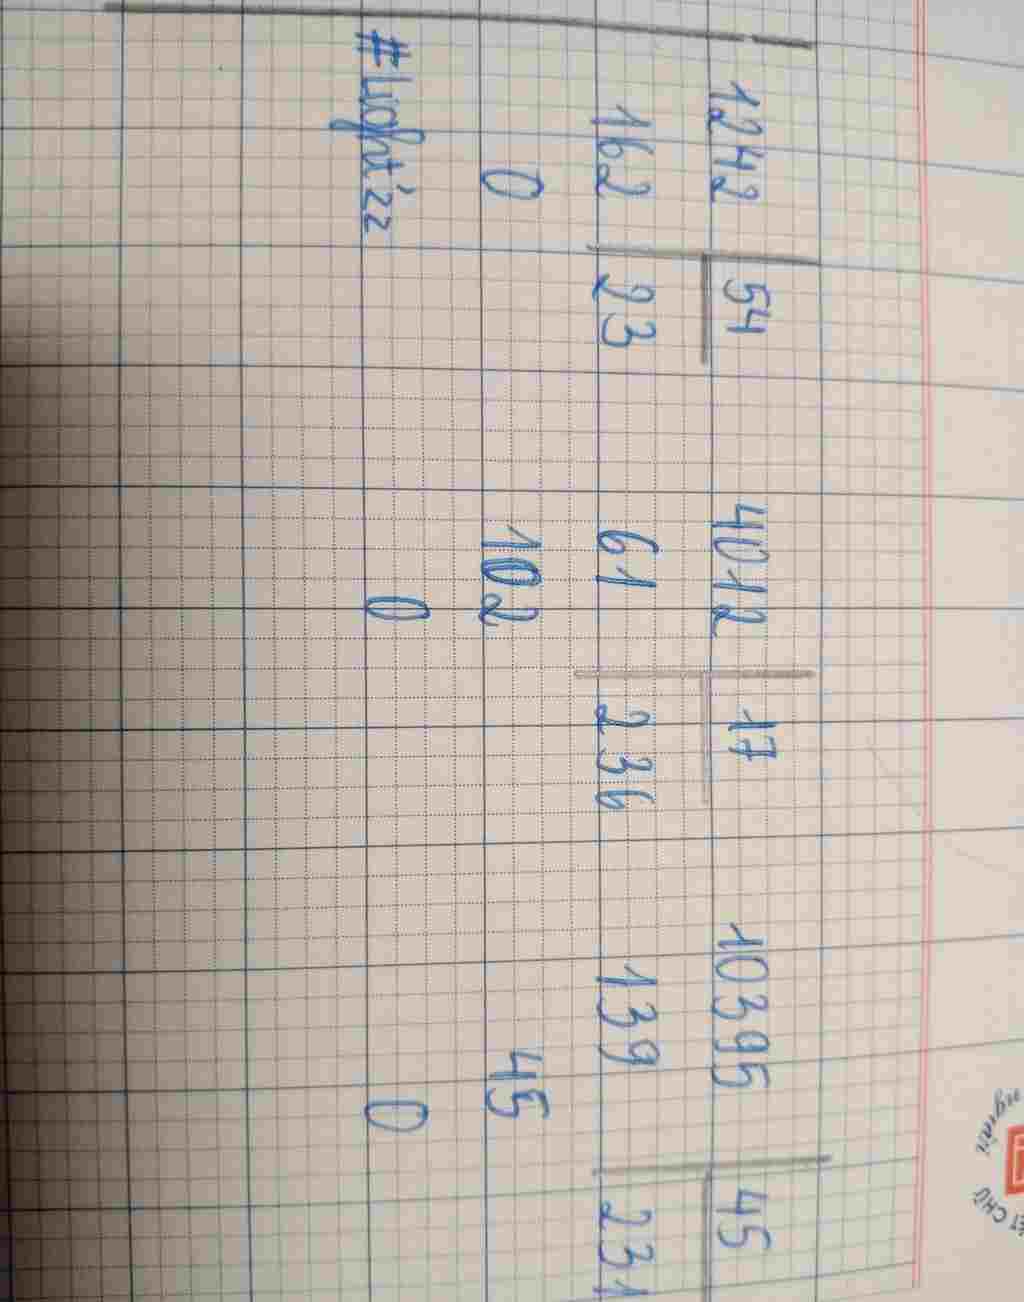 1242 54 4012 17 10395 45
162 23 61 236 139 231
0 102 45
#Light'zz 0 0